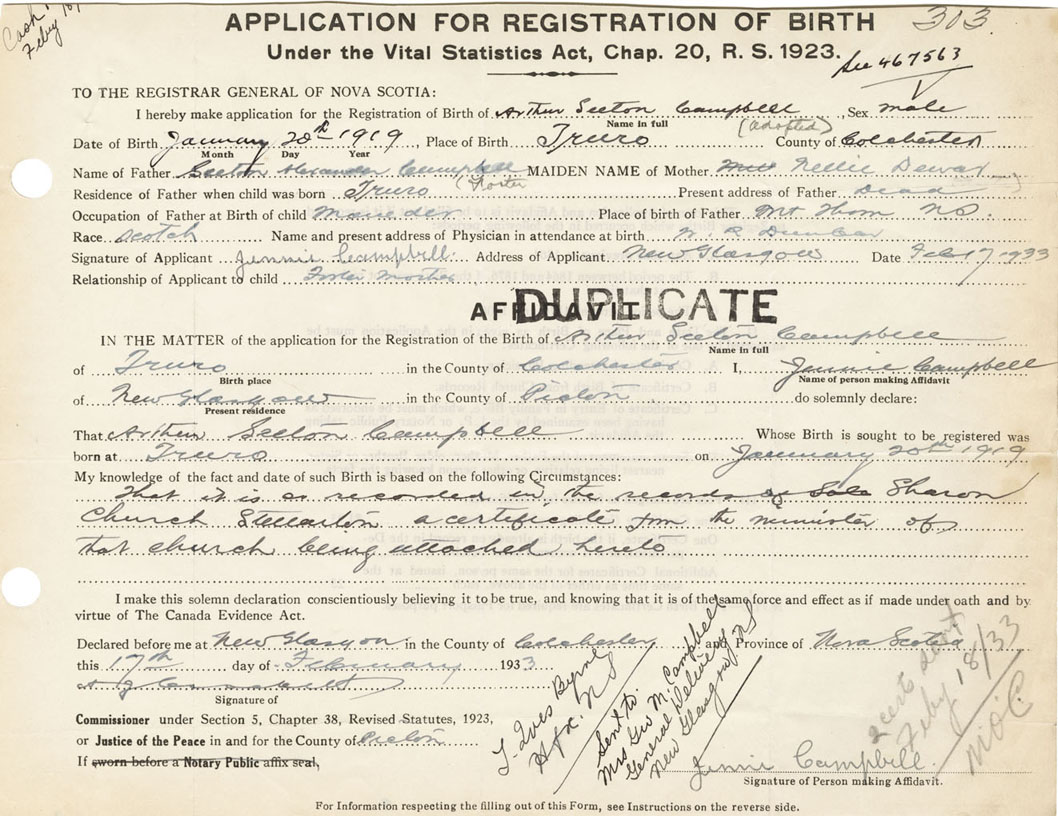 Cash
Feby 18/
APPLICATION FOR REGISTRATION OF BIRTH 303
Under the Vital Statistics Act, Chap. 20, R. S. 1923.
See 467563
TO THE REGISTRAR GENERAL OF NOVA SCOTIA:
I hereby make application for the Registration of Birth of Arthur Seeton Campbell, Sex male
Name in full (adopted)
Date of Birth January 20th 1919, Place of Birth Truro County of Colchester
Month Day Year
Name of Father Seeton Alexander Campbell MAIDEN NAME of Mother Nellie Dewar
(Foster
Residence of Father when child was born Truro Present address of Father Dead
Occupation of Father at Birth of child Place of birth of Father Mt Thom NS.
Race Scotch Name and present address of Physician in attendance at birth Dunbar
Signature of Applicant Jennie Campbell Address of Applicant New Glasgow Date Feb 17 1933
Relationship of Applicant to child Foster Mother
AFFIDAVIT
DUPLICATE
IN THE MATTER of the application for the Registration of the Birth of Arthur Seeton Campbell
Name in full
of Truro in the County of Colchester I, Jennie Campbell
Birth place Name of person making Affidavit
of New Glasgow in the County of Pictou do solemnly declare:
Present residence
That Arthur Seeton Campbell Whose Birth is sought to be registered was
born at Truro on January 20th 1919
My knowledge of the fact and date of such Birth is based on the following Circumstances:
That it is as recorded in the records of Sharon
Church Stellarton a certificate from the minister of
that church being attached hereto
I make this solemn declaration conscientiously believing it to be true, and knowing that it is of the same force and effect as if made under oath and by
virtue of The Canada Evidence Act.
Declared before me at New Glasgow in the County of Colchester and Province of Nova Scotia
this 17th day of February 1933
Signature of
Commissioner under Section 5, Chapter 38, Revised Statutes, 1923,
or Justice of the Peace in and for the County of Pictou
If sworn before a Notary Public affix seal,
Byrne
Hfx. NS
Sent to
Mrs Geo M. Campbell
General Delivery
New Glasgow NS
2 certs sent
Feby 18/33
Jennie Campbell
Signature of Person making Affidavit.
For Information respecting the filling out of this Form, see Instructions on the reverse side.